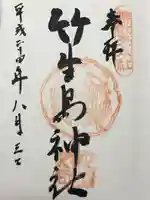 奉拝
竹生島神社
平成二十四年八月三日